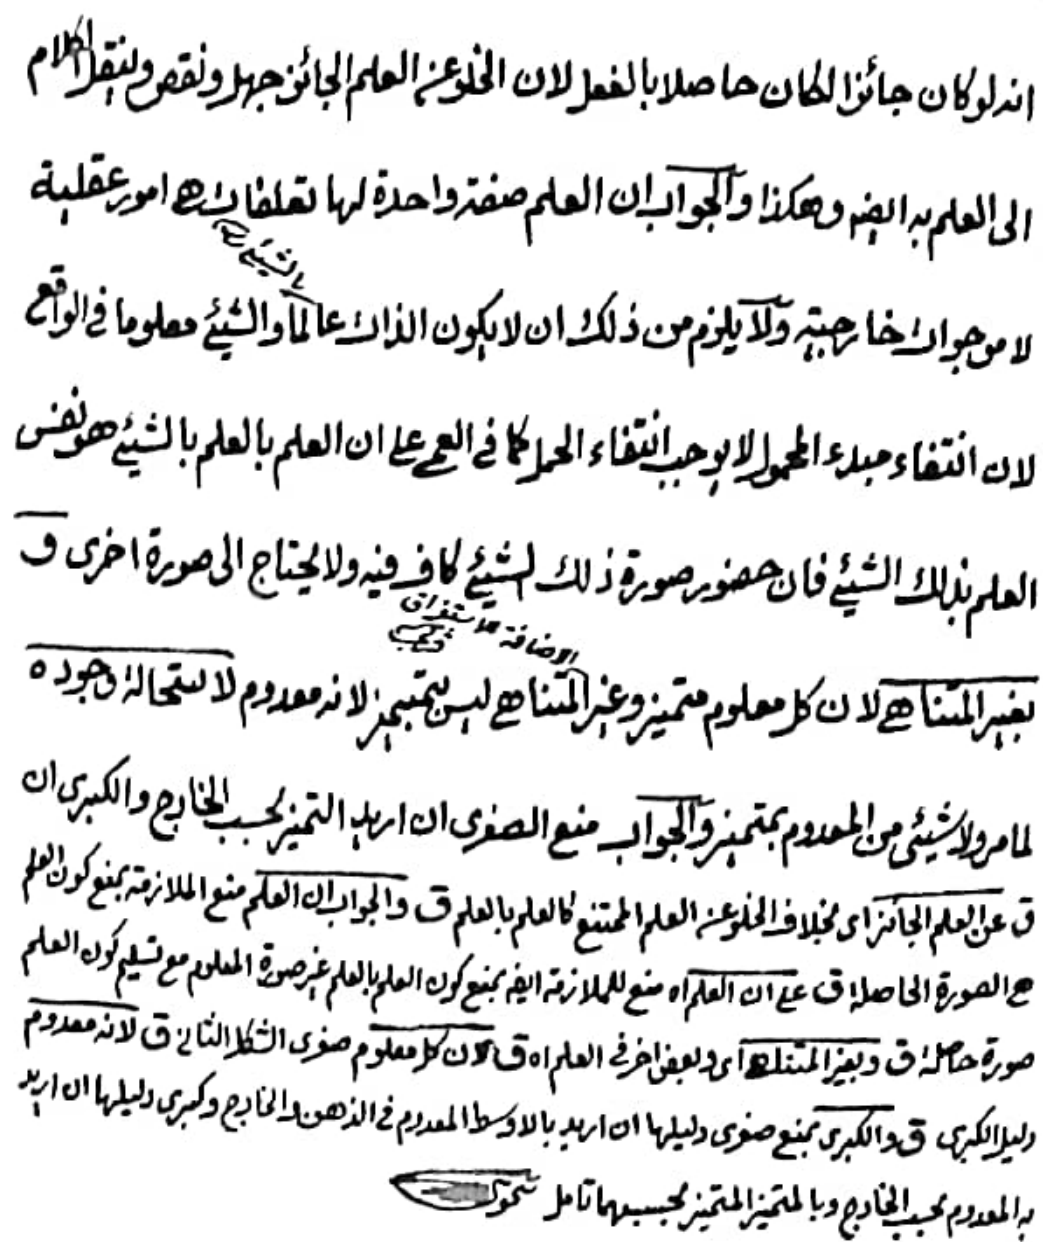 انه لو كان جائزا لكان حاصلا بالفعل لان الخلو عن العلم الجائز جهل ونقص ولننقل الكلام
الى العلم به ايضه وهكذا والجواب ان العلم صفة واحدة لها تعلقات هى امور عقلية
بالشيئ
لا موجودات خارجية ولا يلزم من ذلك ان لا يكون الذات عالما والشيئ معلوما فى الواقع
لان انتفاء مبدء المحمول لا يوجب انتفاء الحمل كما فى العمى على ان العلم بالعلم بالشيئ هو نفس
العلم بذلك الشيئ فان حضور صورة ذلك الشيئ كاف فيه ولا يحتاج الى صورة اخرى و
الاضافة للاستغراق
بغير المتناهى لان كل معلوم متميز وغير المتناهى ليس بمتميز لانه معدوم لاستحالة وجوده
لما مر ولا شيئى من المعدوم بمتميز والجواب منع الصغرى ان اريد التميز بحسب الخارج والكبرى ان
ق عن العلم الجائز اى بخلاف الخلو عن العلم الممتنع كالعلم بالعلم ق والجواب ان العلم منع الملازمة بمنع كون العلم
هى الصورة الحاصلة ق على ان العلم اه منع للملازمة ايضه بمنع كون العلم بالعلم غير صورة المعلوم مع تسليم كون العلم
صورة حاصلة ق وبغير المتناهى اى وبعض اخر فى العلم اه ق لان كل معلوم صغرى الشكل الثانى ق لانه معدوم
دليل الكبرى ق والكبرى بمنع صغرى دليلها ان اريد بالاوسط المعدوم فى الذهن والخارج وكبرى دليلها ان اريد
به المعدوم بحسب الخارج وبالمتميز المتميز بحسبهما تامل